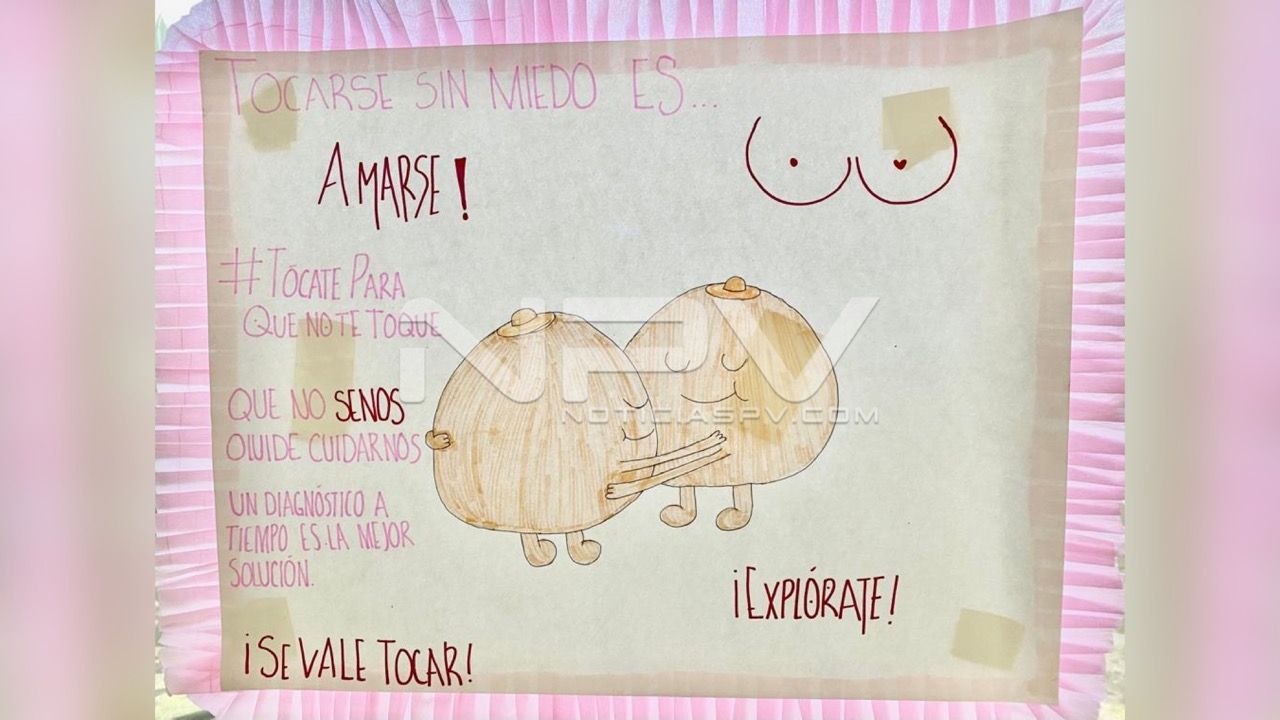 TOCARSE SIN MIEDO ES...
AMARSE!
#TÓCATE PARA
QUE NO TE TOQUE
QUE NO SENOS
OLVIDE CUIDARNOS
UN DIAGNÓSTICO A
TIEMPO ES LA MEJOR
SOLUCIÓN.
¡EXPLÓRATE!
¡SE VALE TOCAR!
NPV
NOTICIASPV.COM